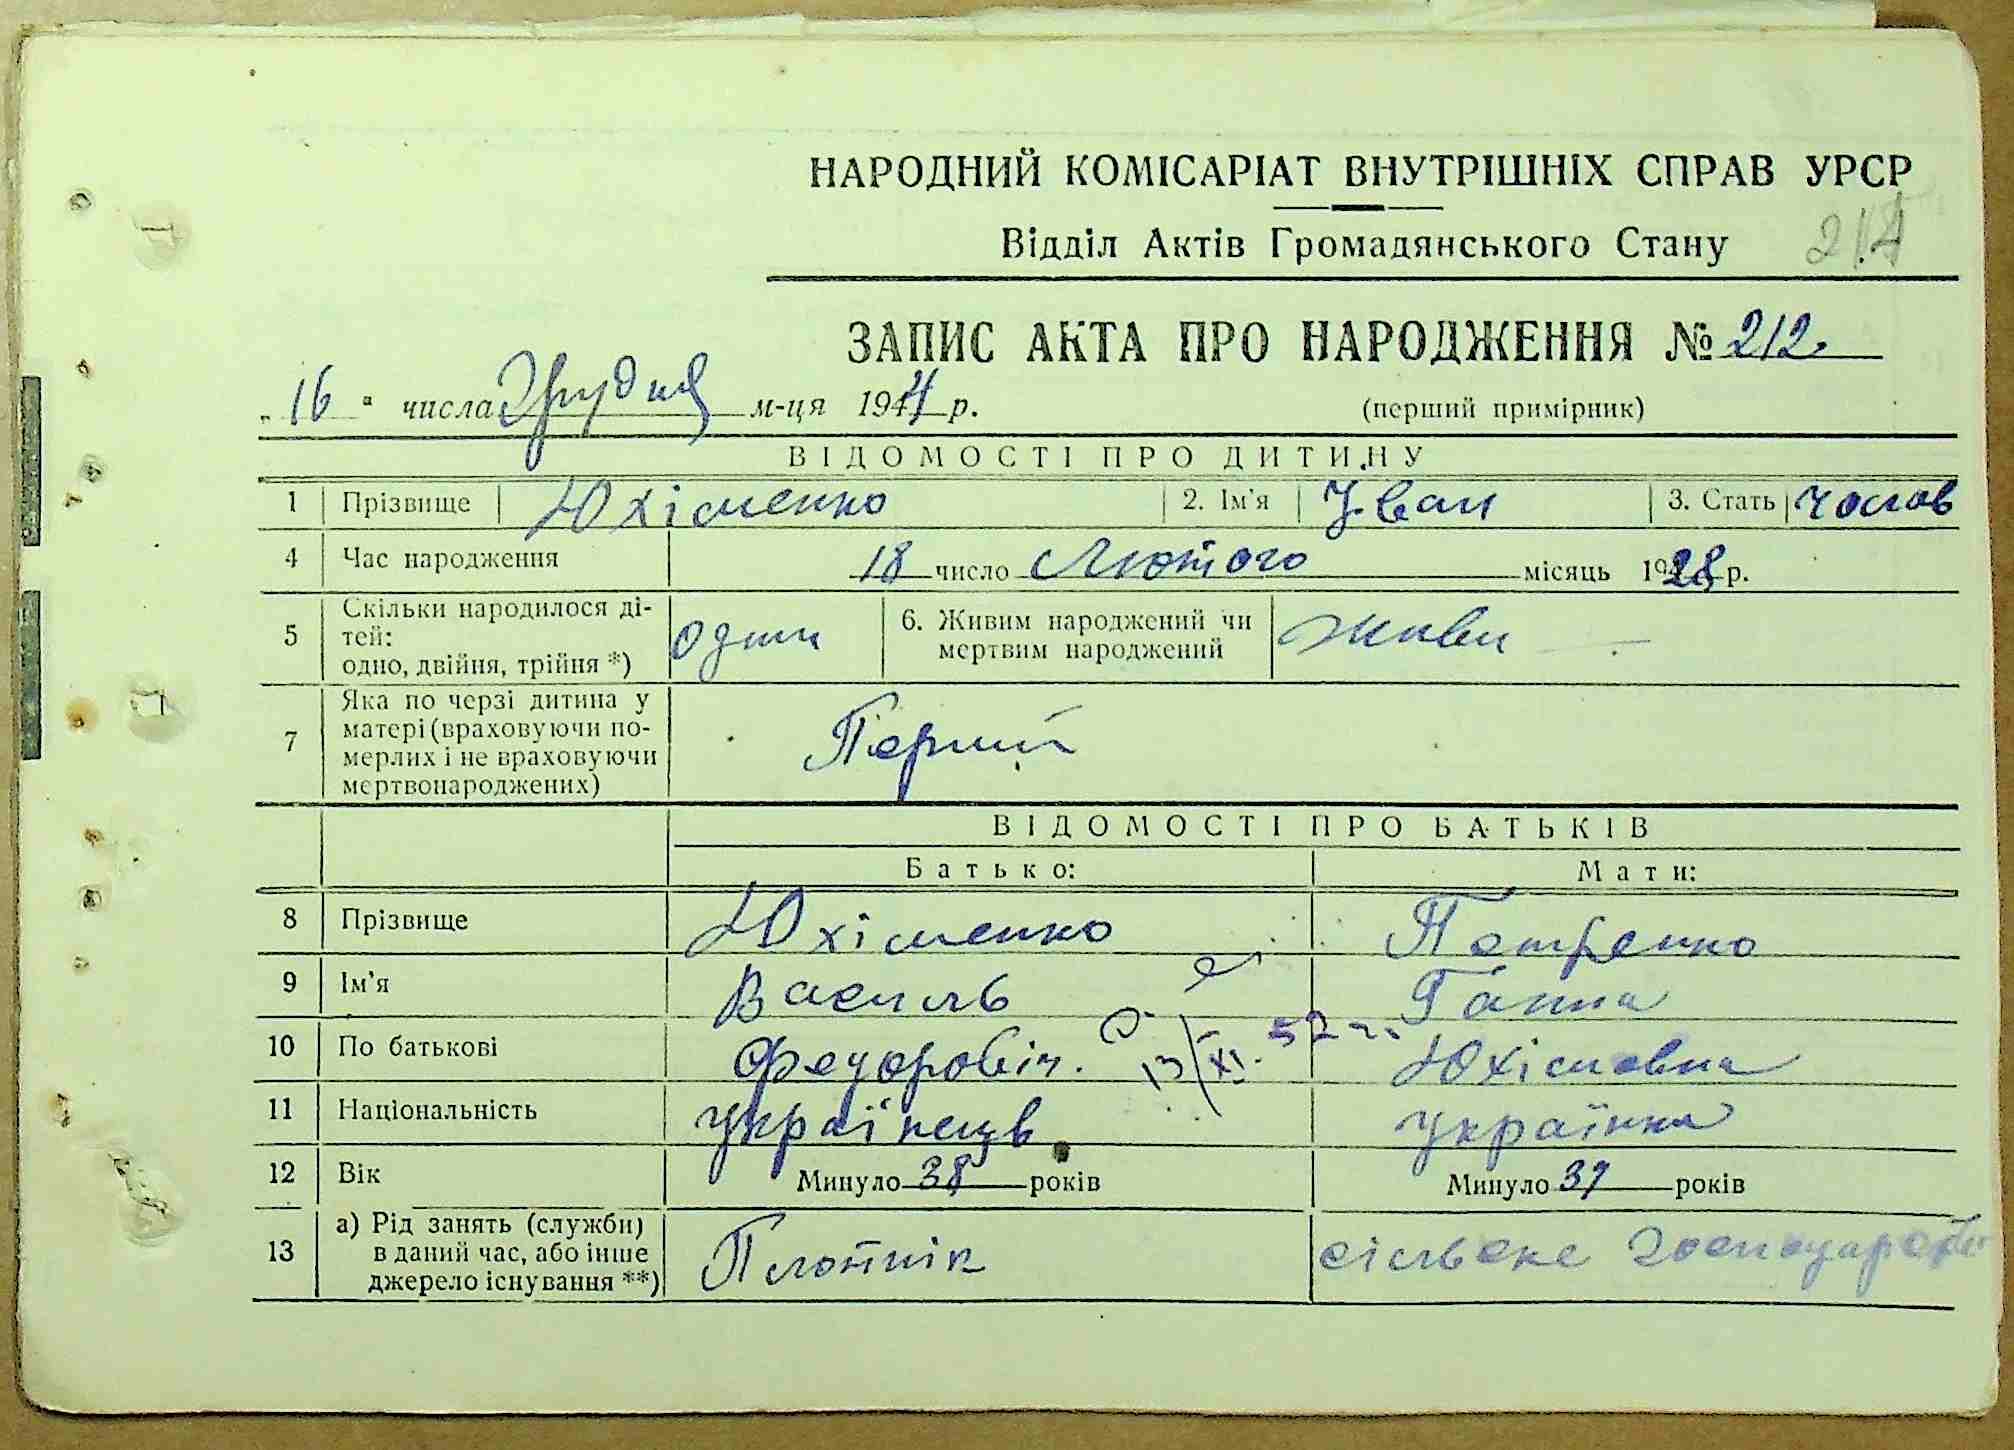 НАРОДНИЙ КОМІСАРІАТ ВНУТРІШНІХ СПРАВ УРСР
Відділ Актів Громадянського Стану
ЗАПИС АКТА ПРО НАРОДЖЕННЯ № 212.
„16“ числа Грудня м-ця 1944 р. (перший примірник)
ВІДОМОСТІ ПРО ДИТИНУ
1 Прізвище Юхіменко 2. Ім'я Іван 3. Стать чолов
4 Час народження 18 число Лютого місяць 1928 р.
5 Скільки народилося дітей: одно, двійня, трійня *) один 6. Живим народжений чи мертвим народжений живи
7 Яка по черзі дитина у матері (враховуючи померлих і не враховуючи мертвонароджених) Перший
ВІДОМОСТІ ПРО БАТЬКІВ
Батько: Мати:
8 Прізвище Юхіменко Петренко
9 Ім'я Василь Ганна
10 По батькові Федоровіч. 13/XI. 52 г. Юхімовна
11 Національність українець українка
12 Вік Минуло 38 років Минуло 37 років
13 а) Рід занять (служби) в даний час, або інше джерело існування **) Плотнік сільське